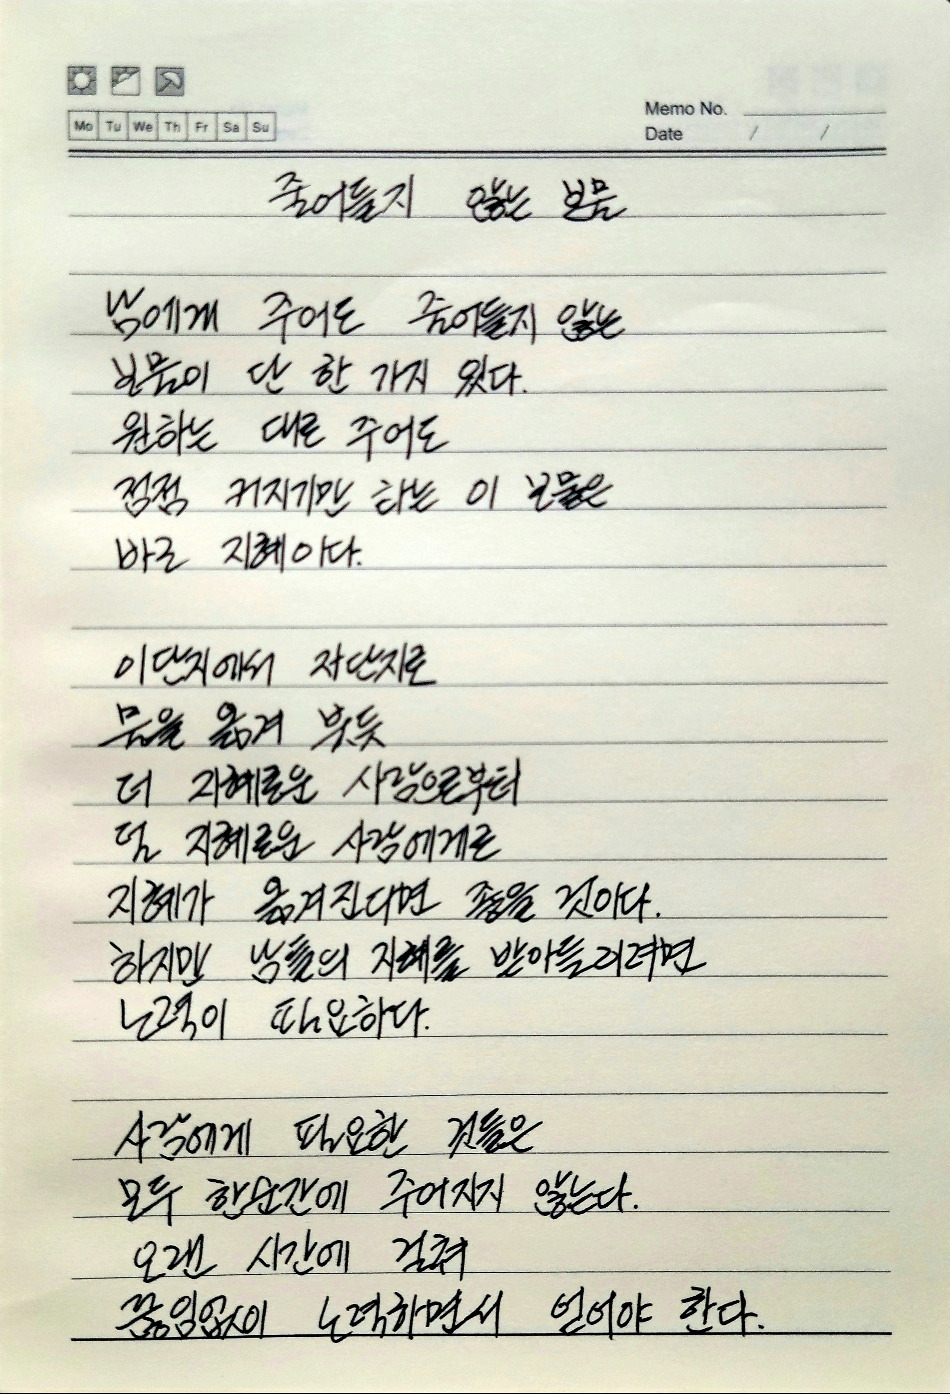 Mo Tu We Th Fr Sa Su
Memo No.
Date / /
줄어들지 않는 보물
남에게 주어도 줄어들지 않는
보물이 단 한 가지 있다.
원하는 대로 주어도
점점 커지기만 하는 이 보물은
바로 지혜이다.
이 단지에서 저 단지로
물을 옮겨 붓듯
더 지혜로운 사람으로부터
덜 지혜로운 사람에게로
지혜가 옮겨진다면 좋을 것이다.
하지만 남들의 지혜를 받아들이려면
노력이 필요하다.
사람에게 필요한 것들은
모두 한순간에 주어지지 않는다.
오랜 시간에 걸쳐
끊임없이 노력하면서 얻어야 한다.